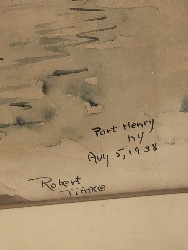 Port Henry
NY
Aug 5, 1938
Robert
Timke